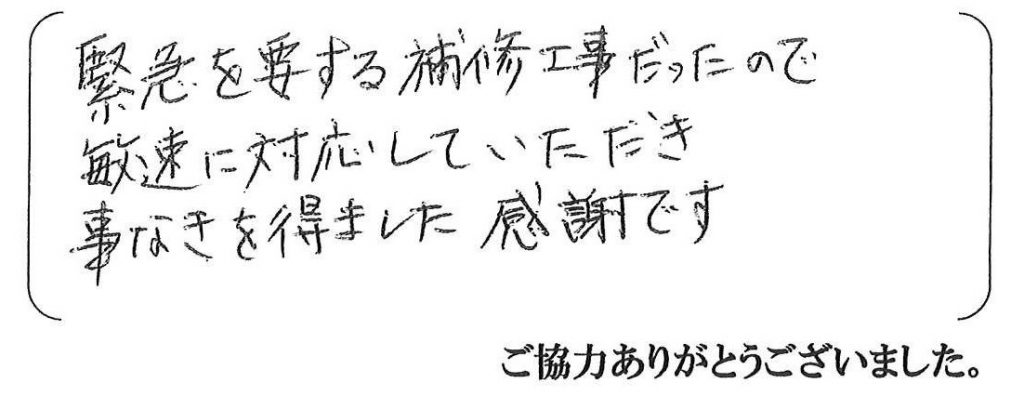 緊急を要する補修工事だったので
敏速に対応していただき
事なきを得ました 感謝です
ご協力ありがとうございました。